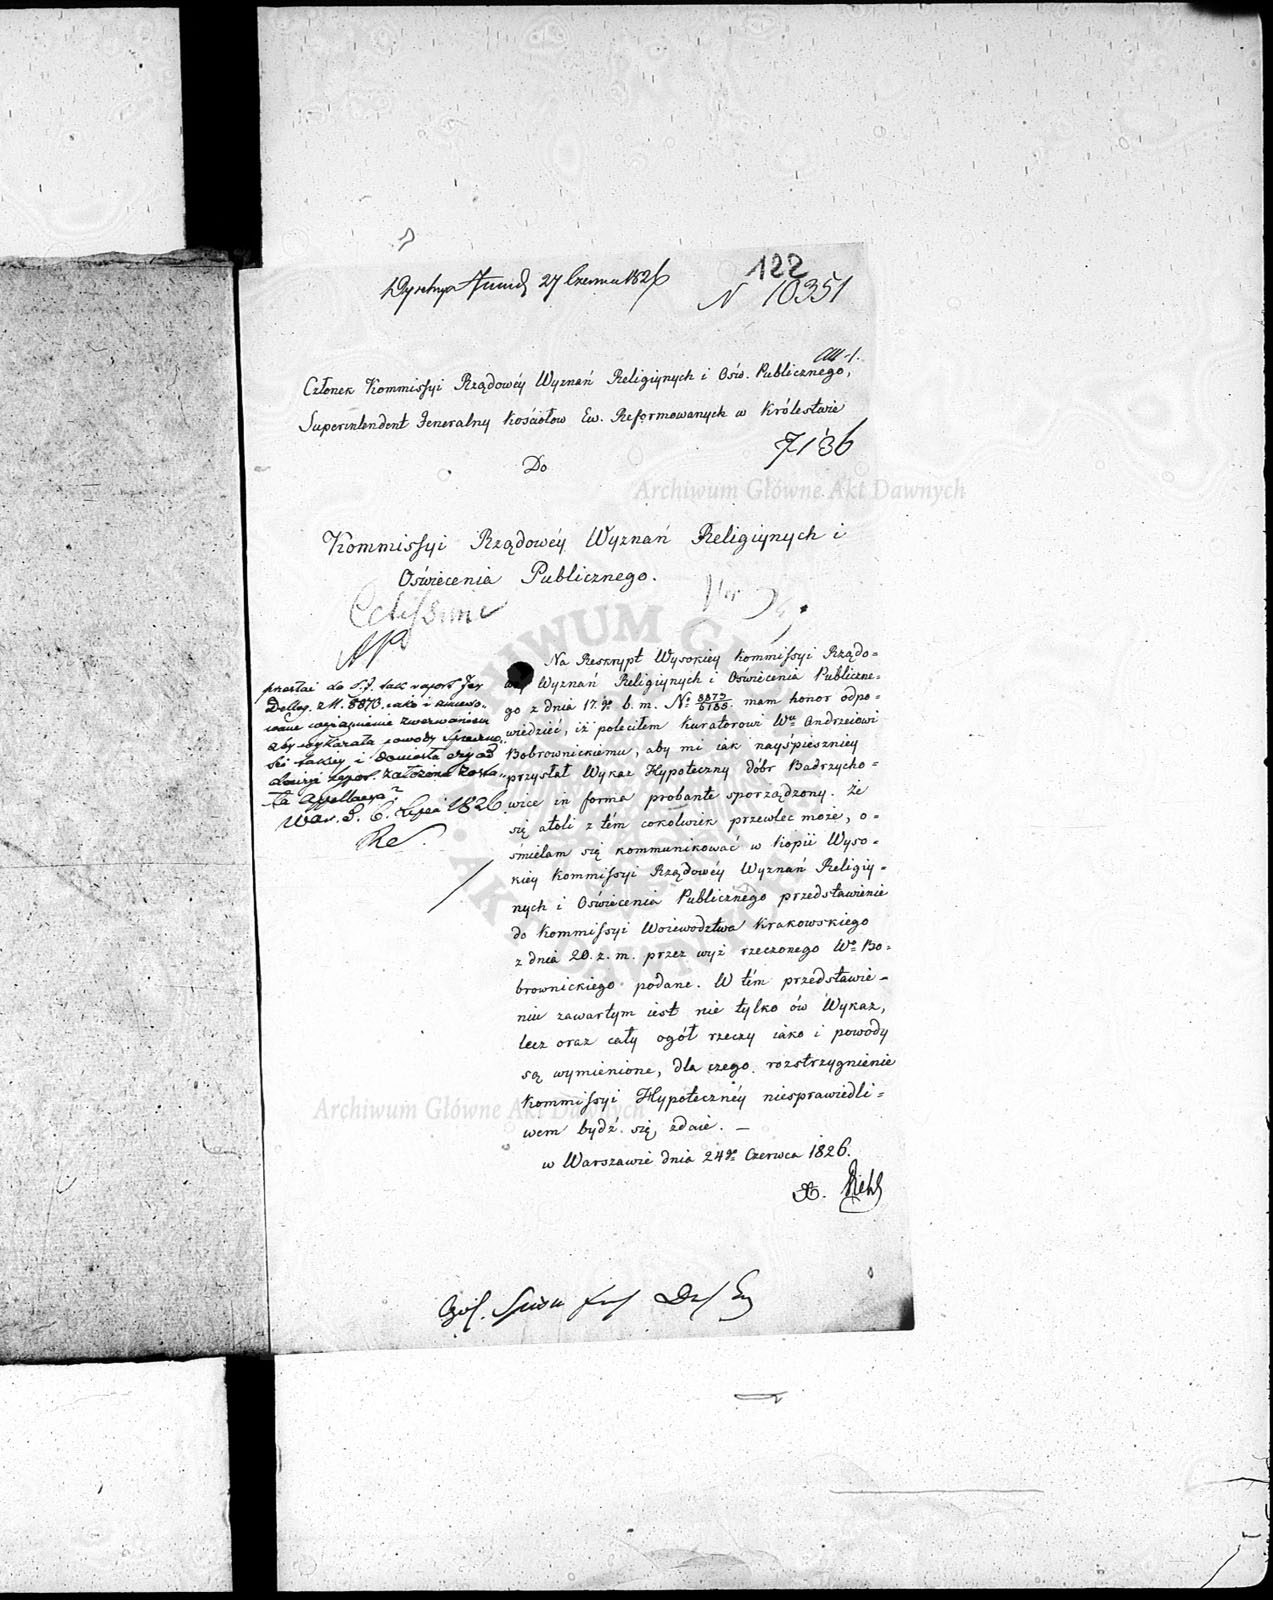 122
27 Czerwca 1826
N 10351
Członek Kommissyi Rządowéy Wyznań Religiynych i Ośw. Publicznego,
Superintendent Jeneralny Kościołow Ew. Reformowanych w Królestwie
7136
Do
Archiwum Główne Akt Dawnych
Kommissyi Rządowéy Wyznań Religiynych i
Oświecenia Publicznego.
Na Reskrypt Wysokiéy Kommissyi Rządo=
wéy Wyznań Religiynych i Oświecenia Publiczne=
go z dnia 17. go b. m. No 8873/6188 mam honor odpo=
wiedzieć, iż poleciłem Kuratorowi Wu Andrzeiowi
Bobrownickiemu, aby mi iak nayśpieszniey
przysłał Wykaz Hypoteczny dóbr Badrzycho=
wice in forma probante sporządzony. Że
się atoli z tém cokolwiek przewlec może, o=
śmielam się kommunikować w kopii Wyso=
kiey Kommissyi Rządowéy Wyznań Religiy=
nych i Oświecenia Publicznego przedstawienie
do Kommissyi Woiewodztwa Krakowskiego
z dnia 20. z. m. przez wyż rzeczonego Wo Bo=
brownickiego podane. W tém przedstawie=
niu zawartym iest nie tylko ów Wykaz,
lecz oraz cały ogół rzeczy iako i powody
są wymienione, dla czego rozstrzygnienie
Kommissyi Hypotecznéy niesprawiedli=
wem bydź się zdaie. —
w Warszawie dnia 24go Czerwca 1826.
Diehl
przesłać do
8873. iako i
aby wykazała powody
takiey i doniosła czy od
założona zosta=
ła Appellacya?
War. d. 6. Lipca 1826
Archiwum Główne Akt Dawnych